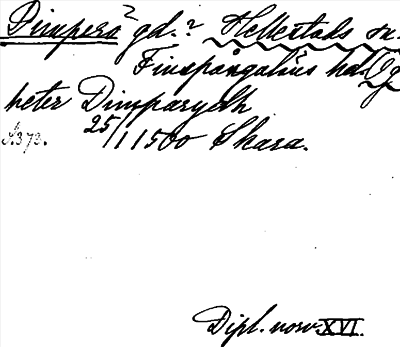 Dimperö? gd.? Hellestads sn.
Finspångaläns hd. Ög
heter Dimparydh
S. 373. 25/11 1500 Skara.
Dipl. norv. XVI.